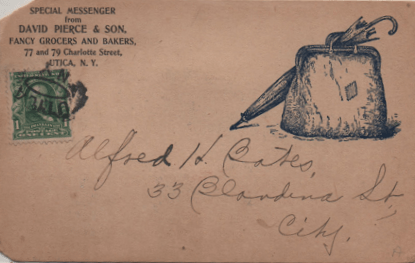 SPECIAL MESSENGER
from
DAVID PIERCE & SON,
FANCY GROCERS AND BAKERS,
77 and 79 Charlotte Street,
UTICA, N. Y.
1
Alfred H. Bates,
33 Blandina St,
City.